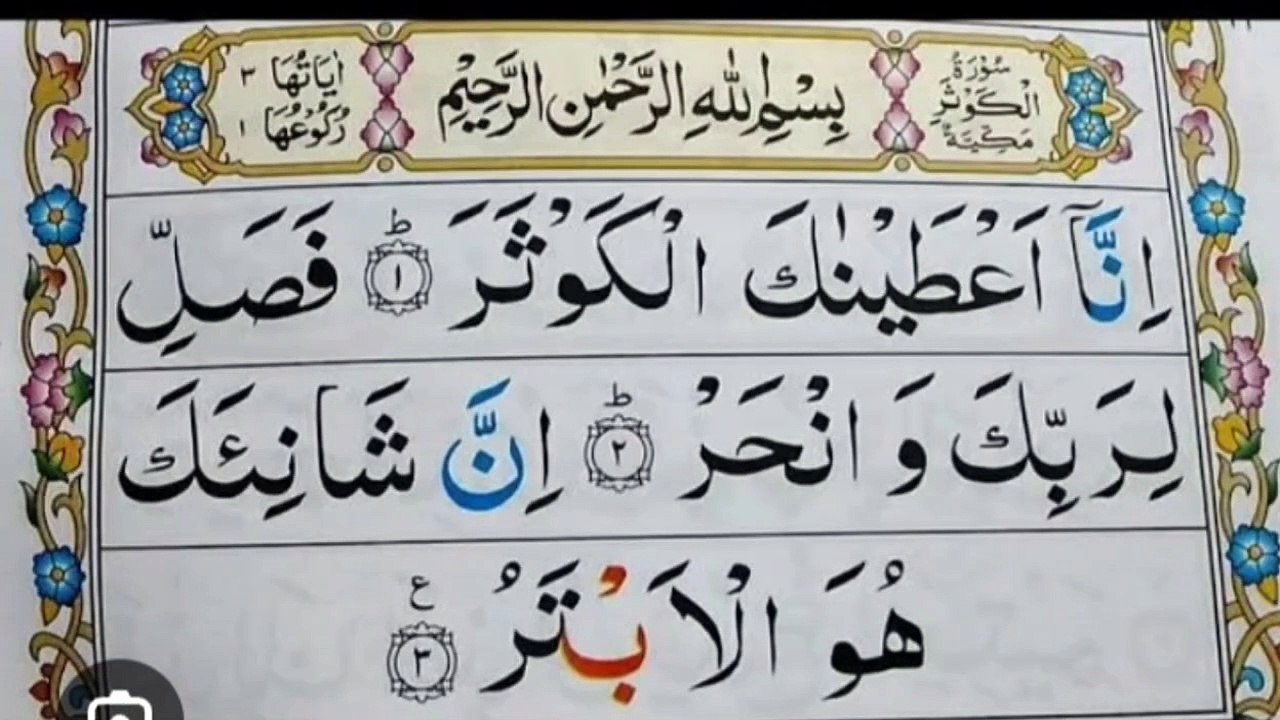 سُوْرَةُ
الْكَوْثَرِ
مَكِّيَّةٌ
بِسْمِ اللّٰهِ الرَّحْمٰنِ الرَّحِيْمِ
اٰيَاتُهَا ٣
رُكُوْعُهَا ١
اِنَّاۤ اَعْطَيْنٰكَ الْكَوْثَرَ ؕ ١ فَصَلِّ
لِرَبِّكَ وَ انْحَرْ ؕ ٢ اِنَّ شَانِئَكَ
هُوَ الْاَبْتَرُ ع ٣